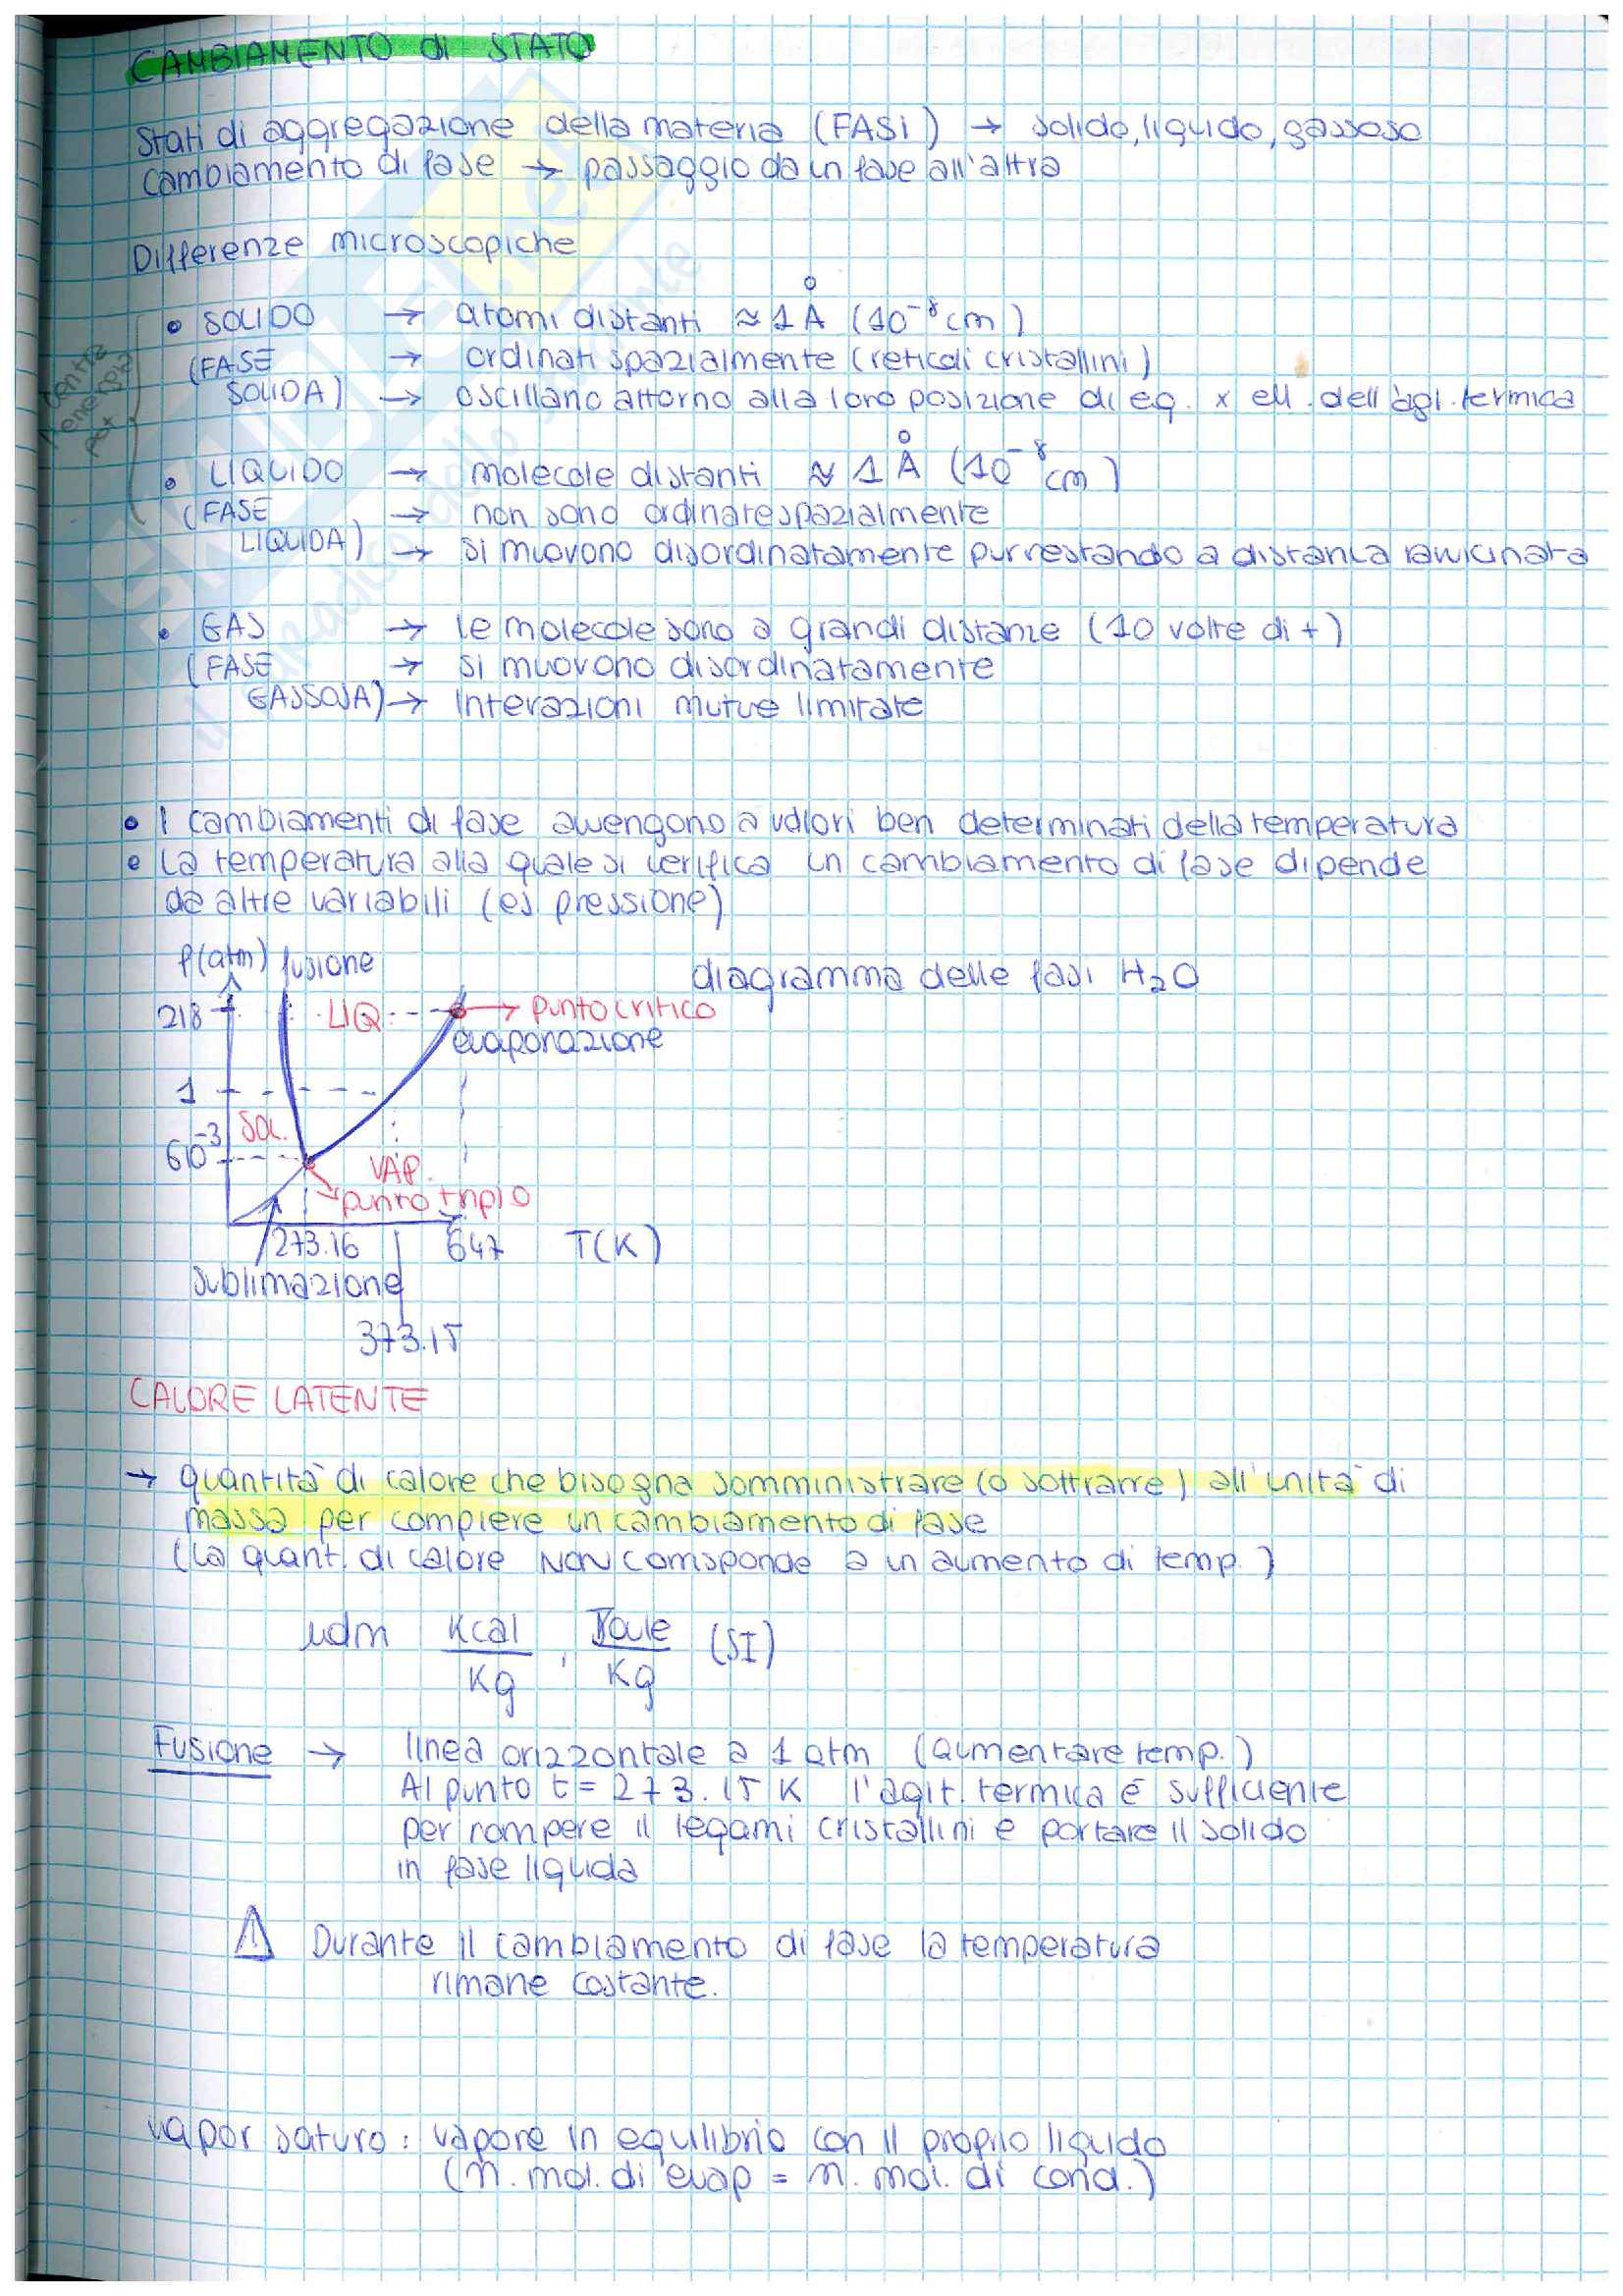 CAMBIAMENTO di STATO
Stati di aggregazione della materia (FASI) → solido, liquido, gassoso
Cambiamento di fase → passaggio da un fase all'altra
Differenze microscopiche
• SOLIDO → atomi distanti ≈ 1 Å (10⁻⁸ cm)
(FASE → ordinati spazialmente (reticoli cristallini)
SOLIDA) → oscillano attorno alla loro posizione di eq. x eff. dell'agi. termica
• LIQUIDO → molecole distanti ≈ 1 Å (10⁻⁸ cm)
(FASE → non sono ordinate spazialmente
LIQUIDA) → si muovono disordinatamente pur restando a distanza ravvicinata
• GAS → le molecole sono a grandi distanze (10 volte di +)
(FASE → si muovono disordinatamente
GASSOSA) → Interazioni mutue limitate
• I cambiamenti di fase avvengono a valori ben determinati della temperatura
• La temperatura alla quale si verifica un cambiamento di fase dipende
da altre variabili (es pressione)
P(atm) fusione
diagramma delle fasi H₂O
218 LIQ. → punto critico
evaporazione
1
SOL.
6 10⁻³
VAP.
punto triplo
273.16 647 T(K)
sublimazione
373.15
CALORE LATENTE
→ quantità di calore che bisogna somministrare (o sottrarre) all'unità di
massa per compiere un cambiamento di fase
(La quant. di calore NON corrisponde a un aumento di temp.)
udm Kcal/Kg , Joule/Kg (SI)
Fusione → linea orizzontale a 1 atm (aumentare temp.)
Al punto t = 273.15 K l'agit. termica è sufficiente
per rompere il legami cristallini e portare il solido
in fase liquida
⚠ Durante il cambiamento di fase la temperatura
rimane costante.
vapor saturo: vapore in equilibrio con il proprio liquido
(n. mol. di evap = n. mol. di cond.)